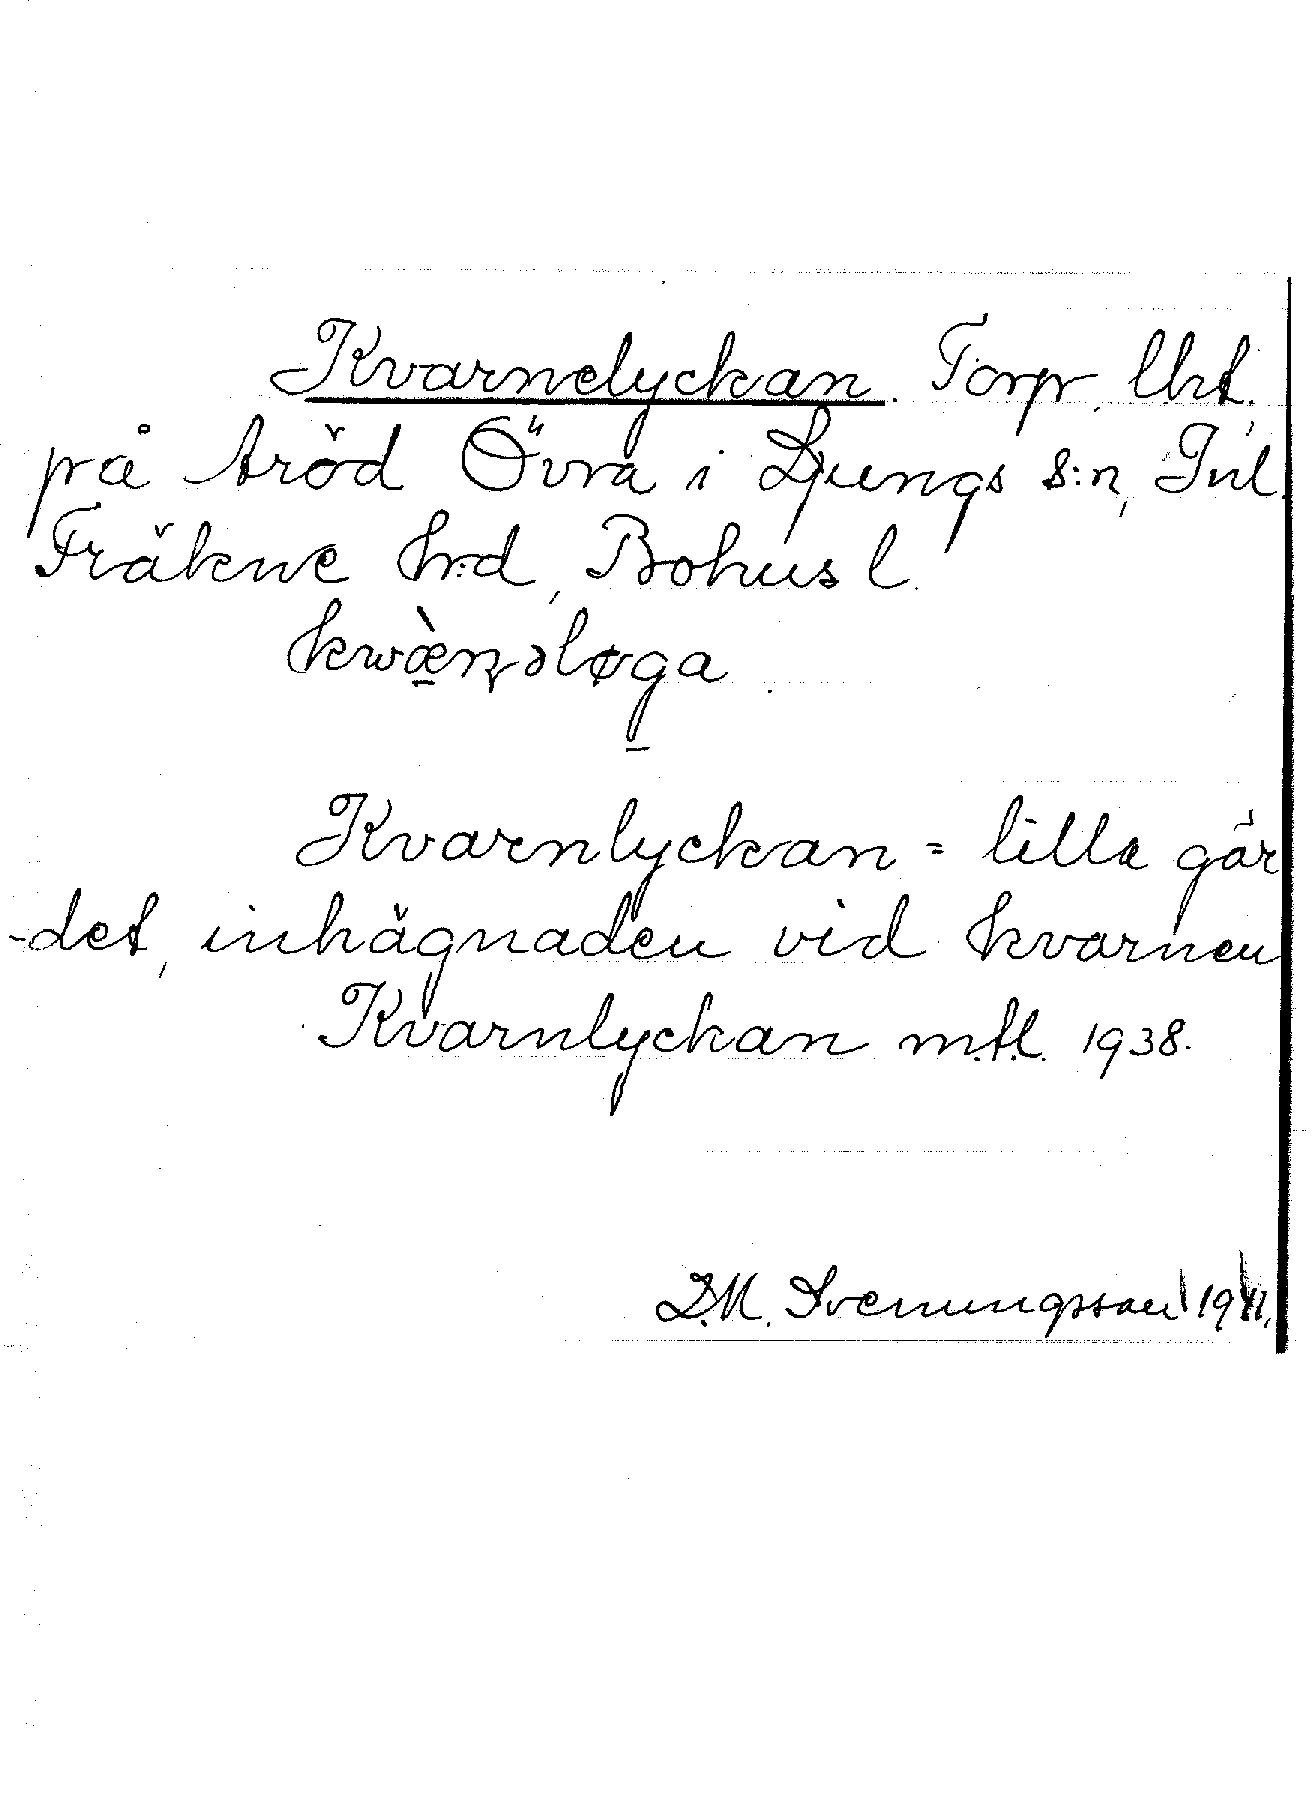 Kvarnelyckan. Torp, lht,
på Aröd Övra i Ljungs s:n, Inl.
Fräkne hrd, Bohusl.
kwæ̀ɳəløga
Kvarnlyckan = lilla gär
-det, inhägnaden vid kvarnen
Kvarnlyckan m.t.l. 1938.
D.M. Svenungsson 1941.